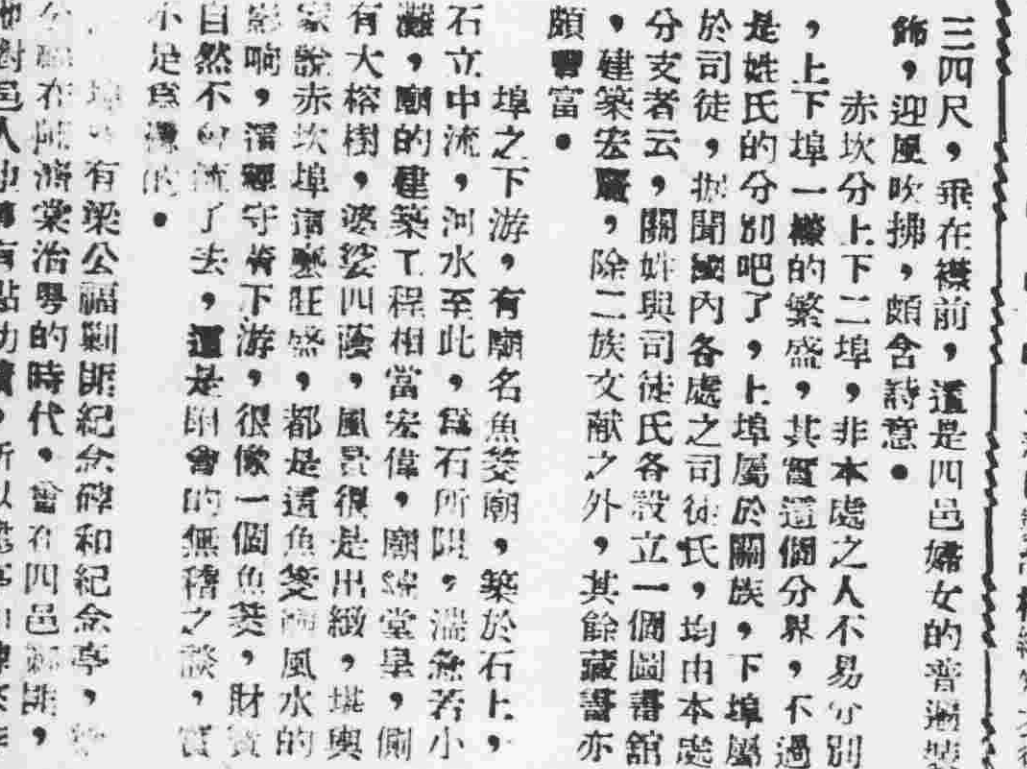 三四尺，乘在襟前，這是四邑婦女的普遍裝
飾，迎風吹拂，頗含詩意。
赤坎分上下二埠，非本處之人不易分別
，上下埠一樣的繁盛，其實這個分界，不過
是姓氏的分別吧了，上埠屬於關族，下埠屬
於司徒，據聞國內各處之司徒氏，均由本處
分支者云，關姓與司徒氏各設立一個圖書舘
，建築宏麗，除二族文献之外，其餘藏書亦
頗豐富。
埠之下游，有廟名魚笅廟，築於石上，
石立中流，河水至此，爲石所阻，湍急若小
灘，廟的建築工程相當宏偉，廟堂皇，側
有大榕樹，婆娑四蔭，風景很是出緻，堪輿
家說赤坎埠這麼旺盛，都是這魚笅廟風水的
影响，牠守着下游，很像一個魚笅，財
自然不會流了去，這是附會的無稽之談，實
不足爲據的。
埠，有梁公福剿匪紀念碑和紀念亭，
在陳濟棠治粵的時代，曾在四邑剿匪，
他對邑人也有點功，所以